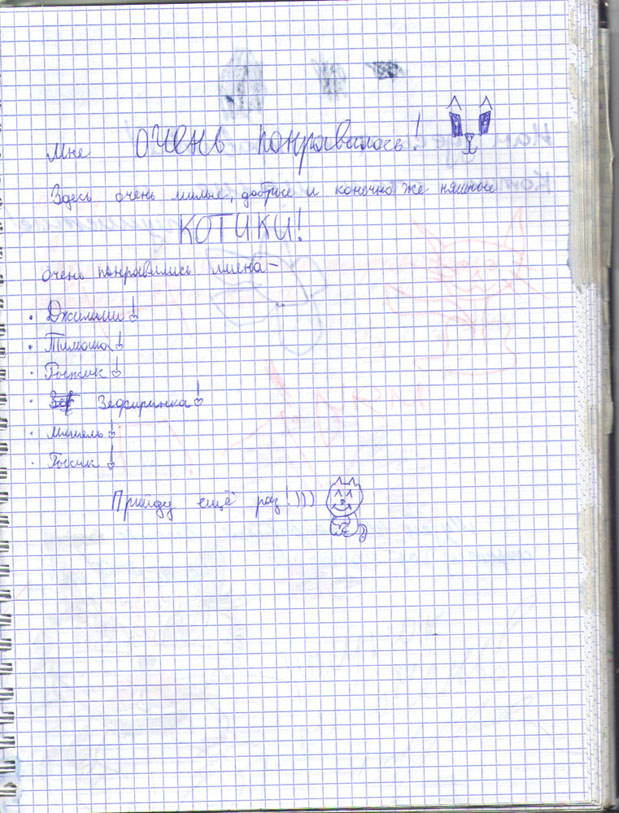 Мне ОЧЕНЬ понравилось!
Здесь очень милые, добрые и конечно же няшные
КОТИКИ!
очень понравились имена -
· Джимми!
· Тимоша!
· Рыжик!
· Зефиринка!
· Мишель!
· Рысик!
Прийду ещё раз!)))